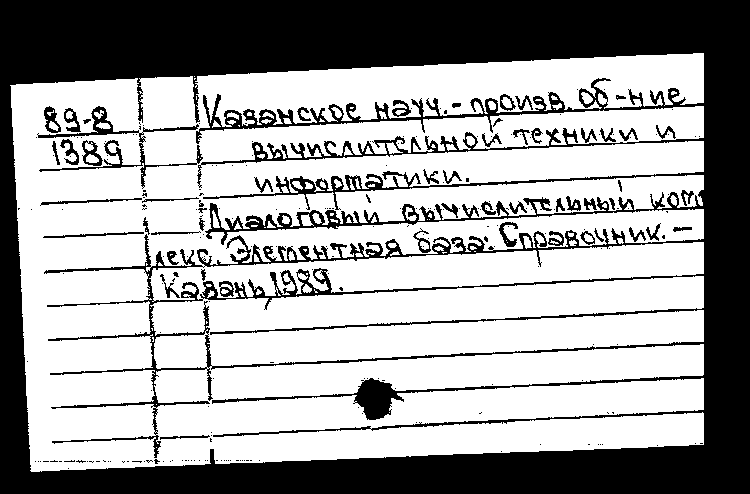 89-8 Казанское науч.-произв. об-ние
1389 вычислительной техники и
информатики.
Диалоговый вычислительный комп
лекс. Элементная база: Справочник. –
Казань, 1989.